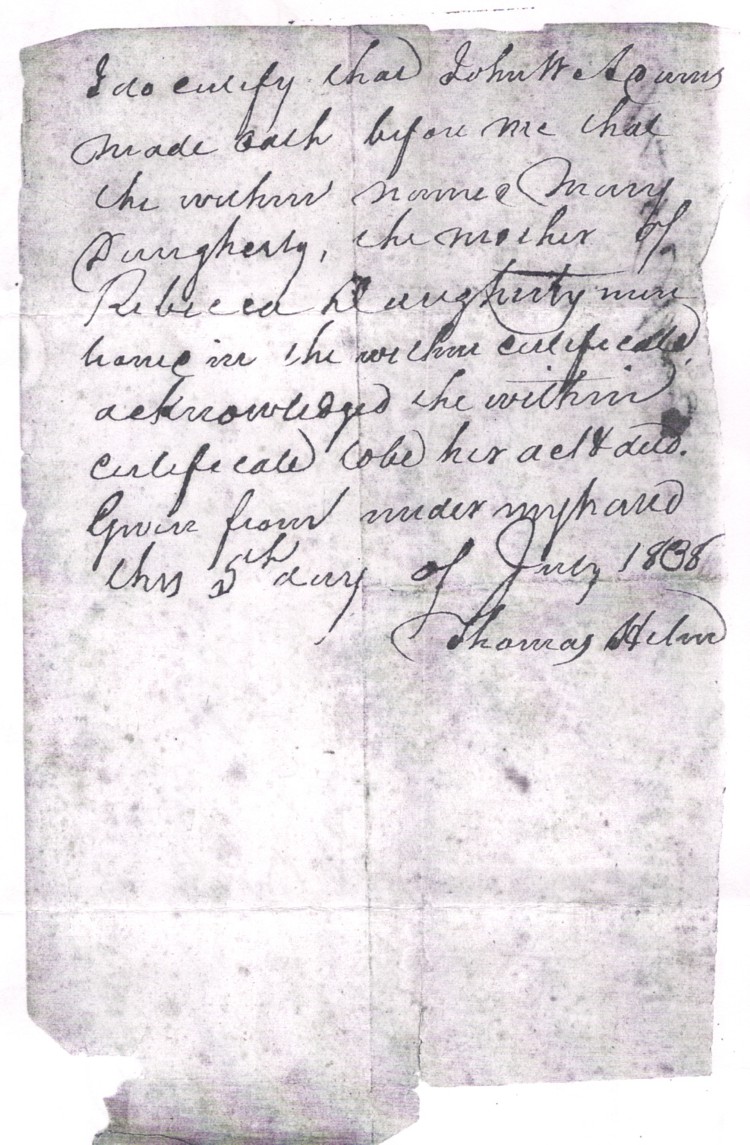 I do certify that John W Adams
made oath before me that
the within named Mary
Daugherty, the mother of
Rebecca Daugherty men
tioned in the within certificate,
acknowledged the within
certificate to be her act & deed.
Given from under my hand
this 5th day of July 1838
Thomas Helm